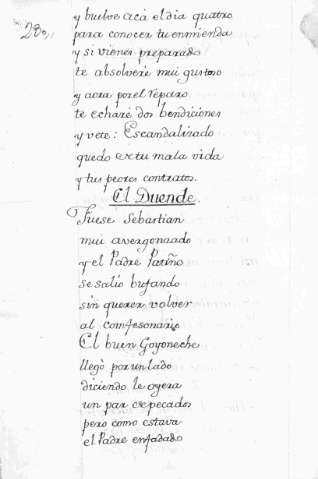 280,,
y buelve acà el dia quatro
para conocer tu enmienda
y si vienes preparado
te absolverè mui gustoso
y aora por el reparo
te echarè dos bendiciones
y vete: Escandalizado
quedo de tu mala vida
y tus peores contratos.
El Duende.
Fuese Sebastian
mui avergonzado
y el Padre Patiño
se saliò bufando
sin querer volver
al comfesonario
El buen Goyoneche
llegò por un lado
diciendo le oyera
un par de pecados
pero como estava
el Padre enfadado